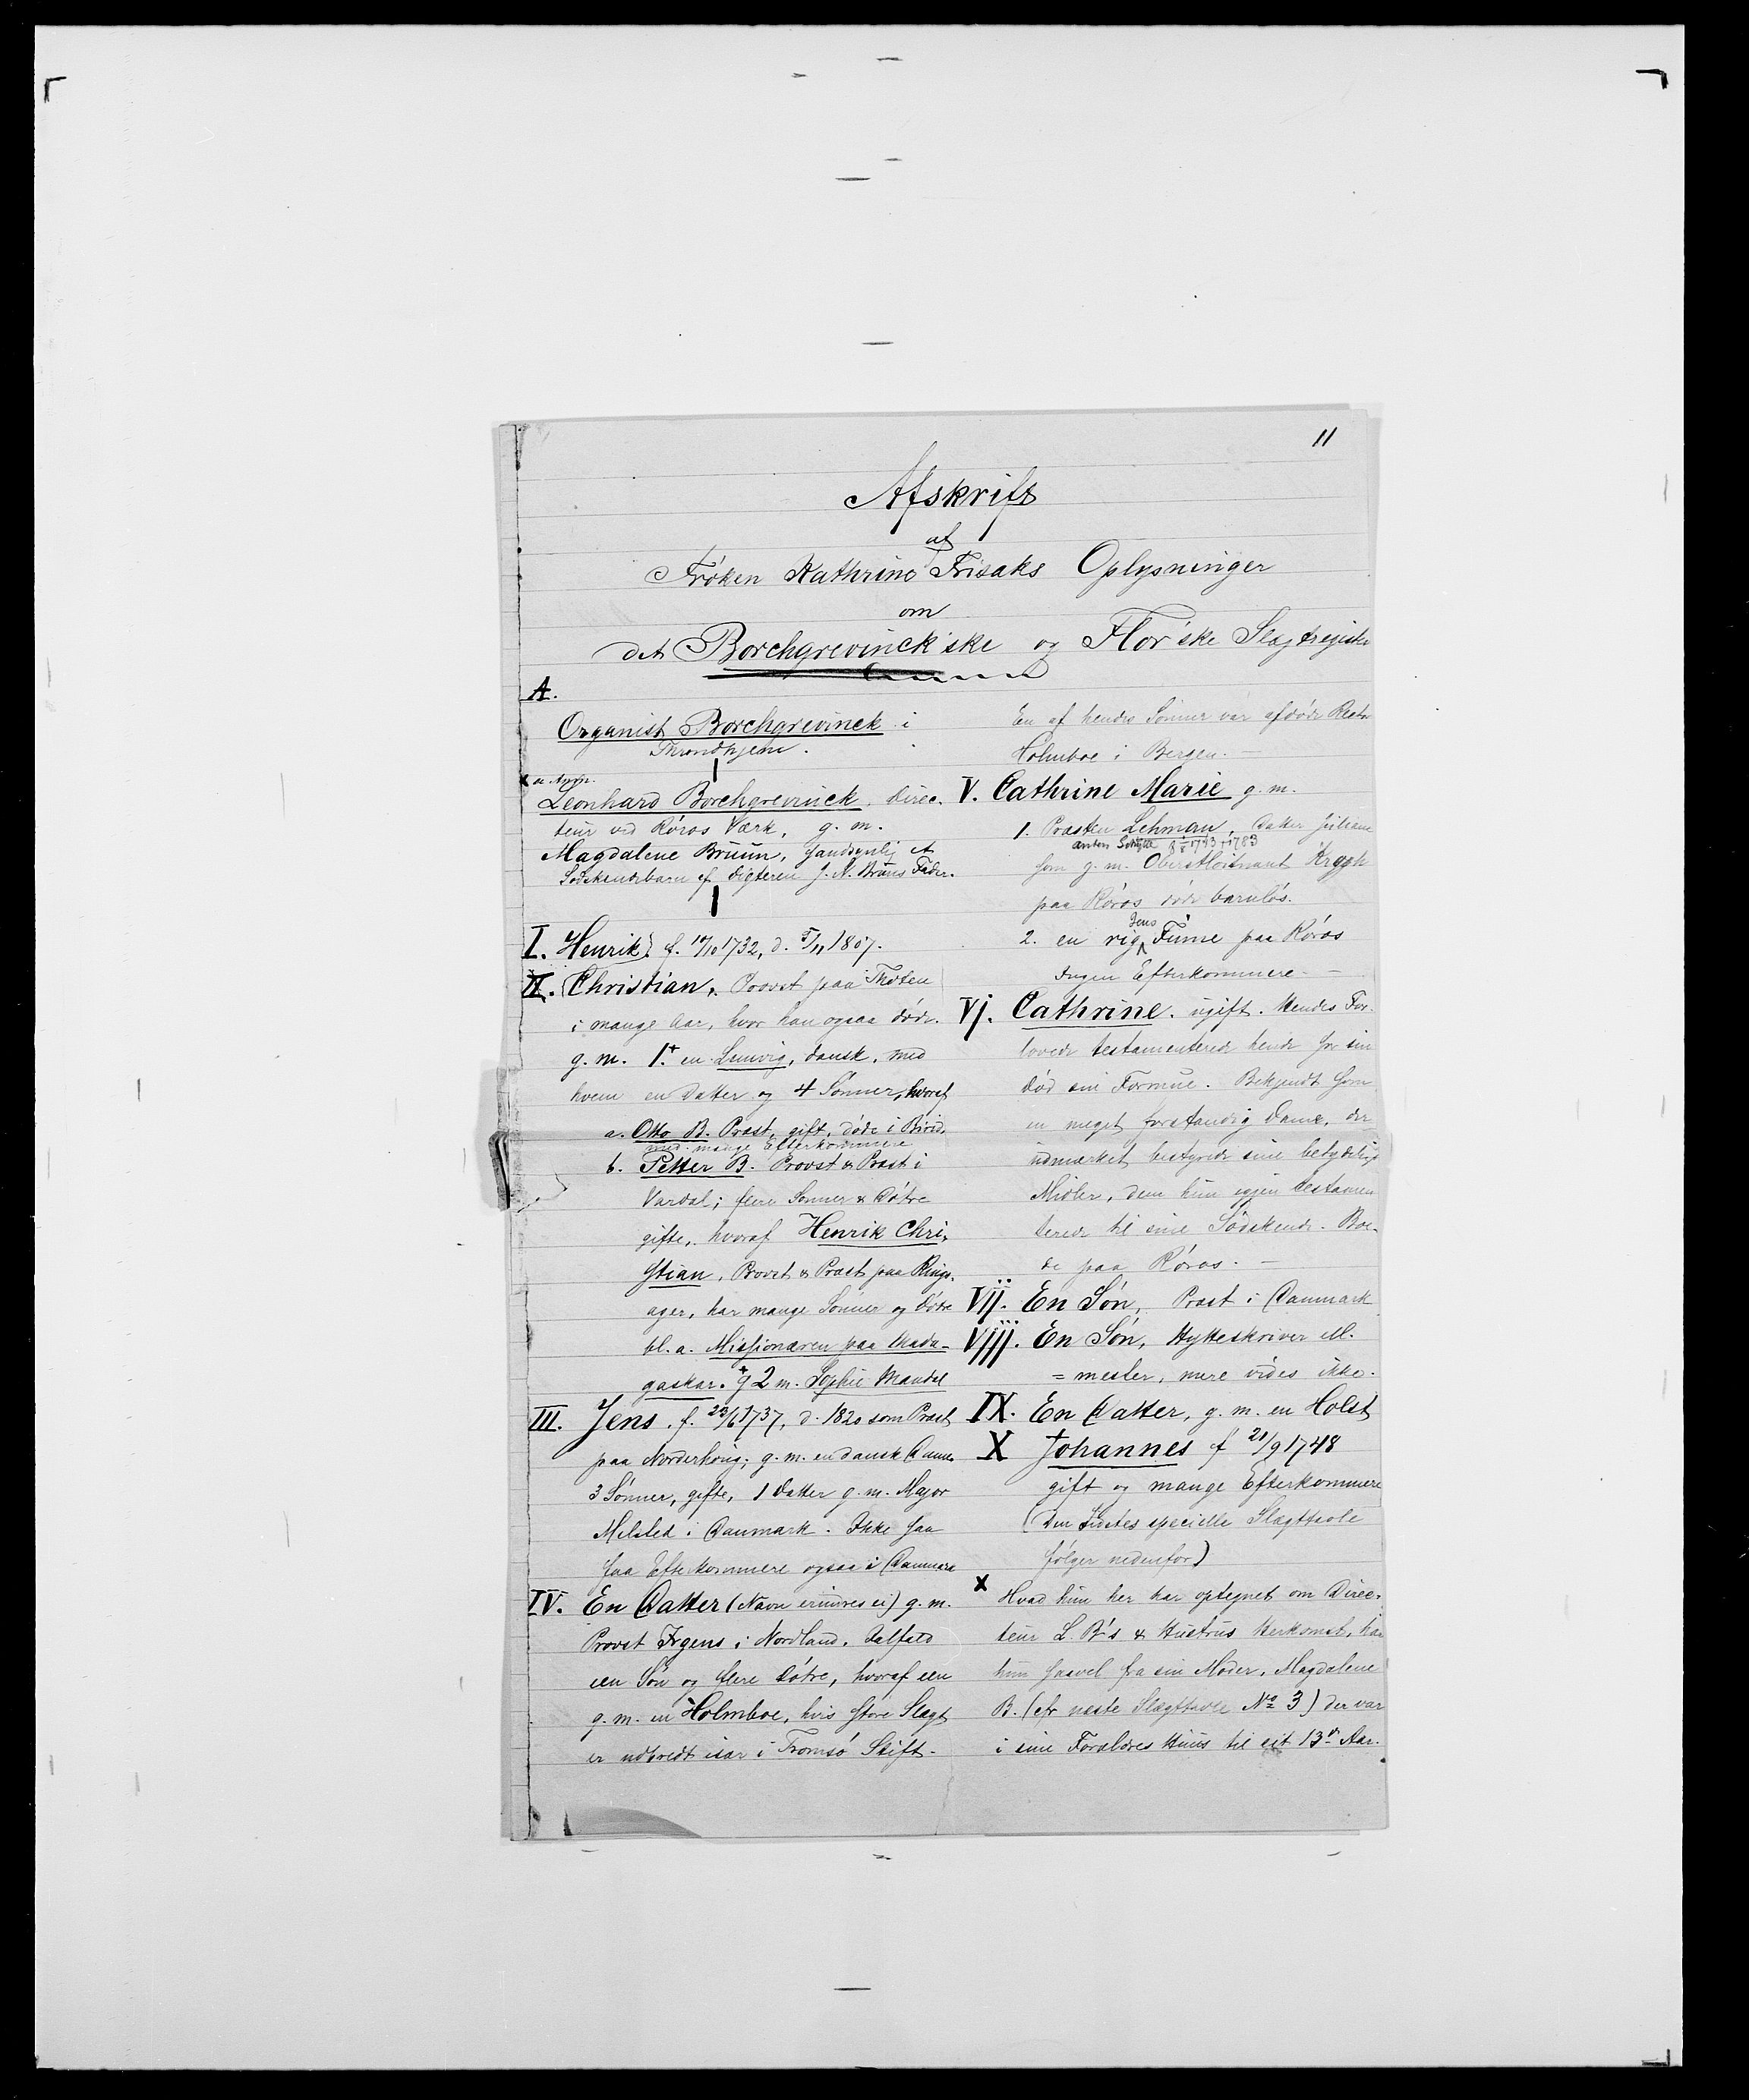 11
Afskrift
af
Frøken Kathrine Frisaks Oplysninger
om
det Borchgrevinck'ske og Flor'ske Slægtregister
A.
Organist Borchgrevinck i
Throndhjem.
Leonhard Borchgrevinck, Direc-
teur ved Røros Værk, g. m.
Magdalene Bruun, sandsynlig et
Sødskendebarn af Digteren J. N. Bruns Fader.
I. Henrik f. 17/10 1732, d. 5/11 1807.
II. Christian, Provst paa Thoten
i mange Aar, hvor han ogsaa døde.
g. m. 1. en Lunvig, dansk, med
hvem en Datter og 4 Sønner, hvoraf
a. Otto B. Præst, gift, døde i Birid.
med mange Efterkommere
b. Petter B. Provst & Præst i
Vardal; flere Sønner & Døtre
gifte, hvoraf Henrik Chri-
stian, Provst & Præst paa Ringe-
ager, har mange Sønner og Døtre
bl. a. Missionæren paa Mada-
gaskar. g 2 m. Sophie Mandal
III. Jens, f. 23/6 1737, d. 1820 som Præst
paa Norderhoug; g. m. en dansk Dame
3 Sønner, gifte, 1 Datter g. m. Major
Milsted i Danmark. Ikke saa
faa Efterkommere ogsaa i Danmark
IV. En Datter (Navn erindres ei) g. m.
Provst Irgens i Nordland. Ialfald
een Søn og flere Døtre, hvoraf een
g. m. en Holmboe, hvis store Slægt
er udbredt især i Tromsø Stift.
En af hendes Sønner var afdøde Rector
Holmboe i Bergen. —
V. Cathrine Marie g. m.
1. Præsten Lehman, Datter Juliane
Anton 1743 † 1783
som g. m. Oberstløitnant Krogh
paa Røros døde barnløs.
2. en rig Jens Finne paa Røros
Ingen Efterkommere. —
VI. Cathrine. ugift. Hendes For-
lovede testamenterede hende før sin
Død sin Formue. Bekjendt som
en meget forstandig Dame, der
udmærket bestyrede sine betydelige
Midler, dem hun igjen testamen-
terede til sine Sødskende. Boe-
de paa Røros. —
VII. En Søn, Præst i Danmark
VIII. En Søn, Hytteskriver el.
= mester, mere vides ikke.
IX. En Datter, g. m. en Holst
X Johannes f 21/9 1748
gift og mange Efterkommere
(Den Sidstes specielle Slægttavle
følger nedenfor)
x Hvad hun her har optegnet om Direc-
teur L. B's & Hustrus Herkomst, har
hun saavel fra sin Moder, Magdalene
B. (cfr næste Slægttavle No 3) der var
i sine Forældres Huus til sit 13de Aar.